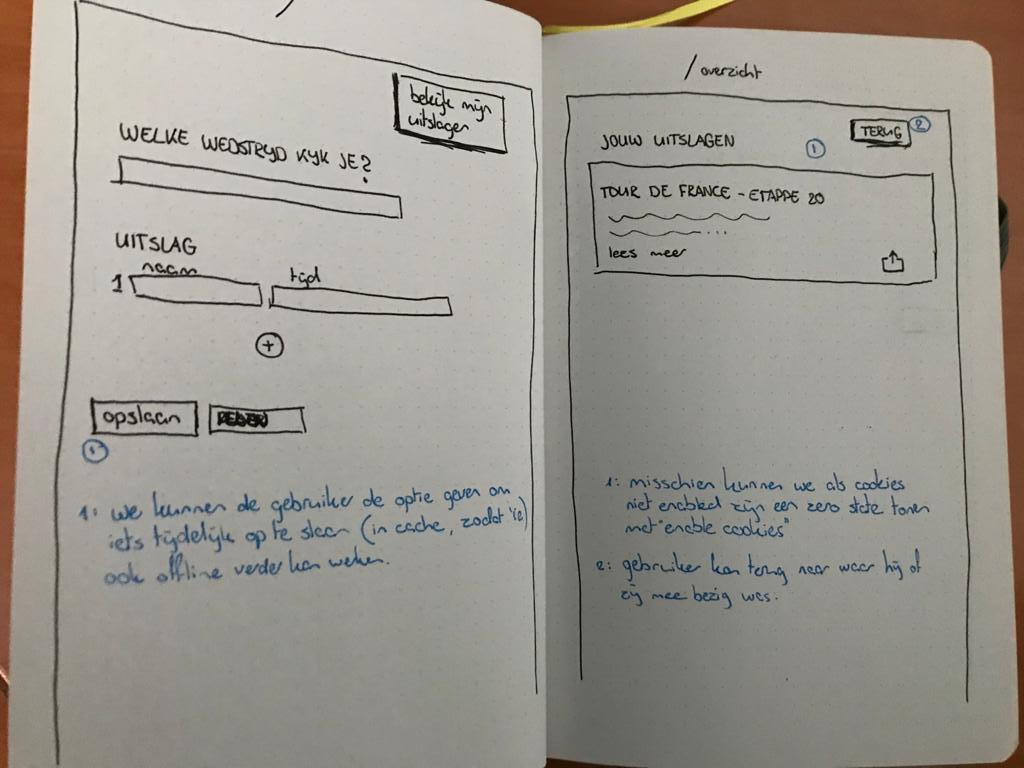 /
bekijk mijn
uitslagen
WELKE WEDSTRYD KYK JE?
UITSLAG
naam
tijd
1
+
opslaan
1
1: we kunnen de gebruiker de optie geven om
iets tijdelijk op te slaan (in cache, zodat 'ie)
ook offline verder kan werken.
/ overzicht
JOUW UITSLAGEN
1
TERUG
2
TOUR DE FRANCE - ETAPPE 20
...
lees meer
1: misschien kunnen we als cookies
niet enabled zijn een zero state tonen
met "enable cookies"
2: gebruiker kan terug naar waar hij of
zij mee bezig was.